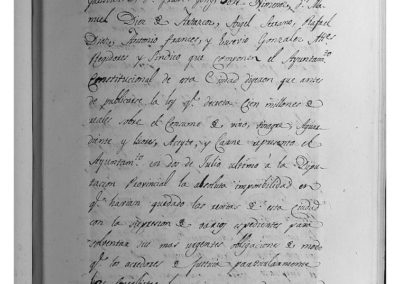 miel Diez de Tatarcos, Angel Serano, Rafael
Diaz, Antonio Frances, y Eusevio Gonzalez Al.s
Rexidores y Sindico que componen el Ayuntam.to
Constitucional de esta Ciudad digeron que antes
de publicarse la ley q.e decreta Cien millones de
reales sobre el Consumo de vino, vinagre, Aguar
diente y licores, Aceyte, y Carne represento el
Ayuntam.to en dos de Julio ultimo á la Dipu-
tacion Provincial la absoluta imposibilidad en
q.e havian quedado las rentas de esta ciudad
con la supresion de varios espedientes para
solventar sus mas urgentes obligaciones de modo
q.e los acreedores de Justicia particularmente